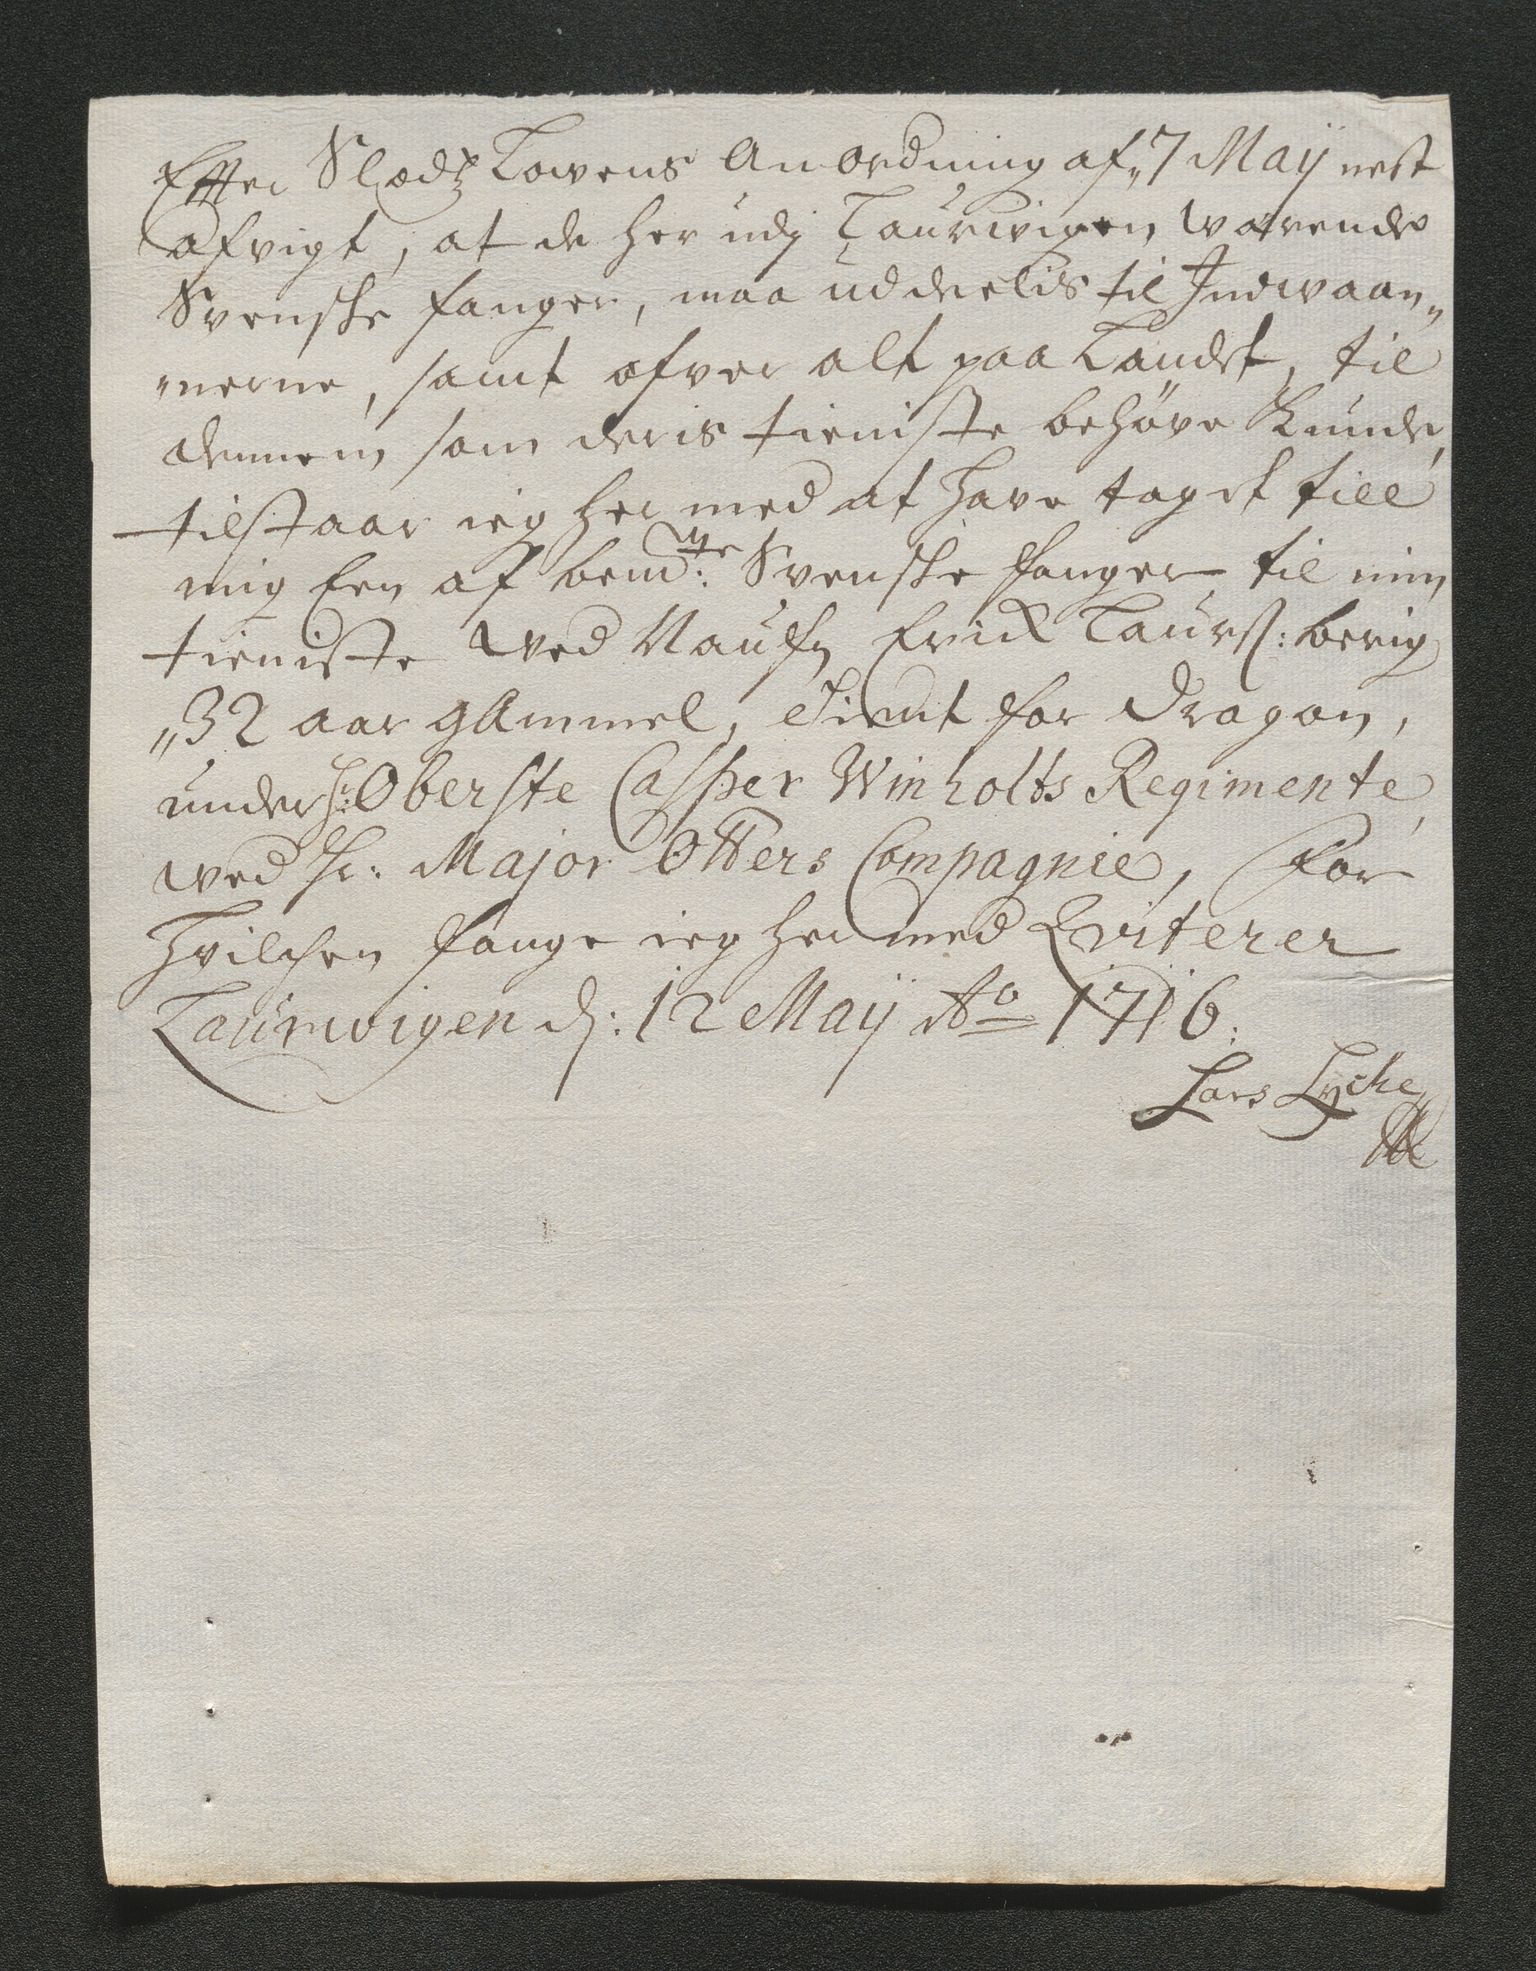 Efter Slodtz Lovens Anordning af 7 Maij nest
afvigt, at de her udj Laurwigen warende
Svenske fanger, maa uddeelis til Indwaan„
„nerne, samt ofver alt paa Landet, til
dennem som deris tieniste behøve kunde,
tilstaar ieg her med at have taget till
mig Een af bemte: Svenske fanger, til min
tieniste ved Naufn Erick Laurß: berig
„32 aar gammel, Tient for Dragon,
under H: Oberste Casper Winholts Regimente,
ved Hr: Major Otters Compagnie, for
hvilchen fange ieg her med Qviterer
Laurwigen d: 12 Maij Ao 1716:
Lars Lyche